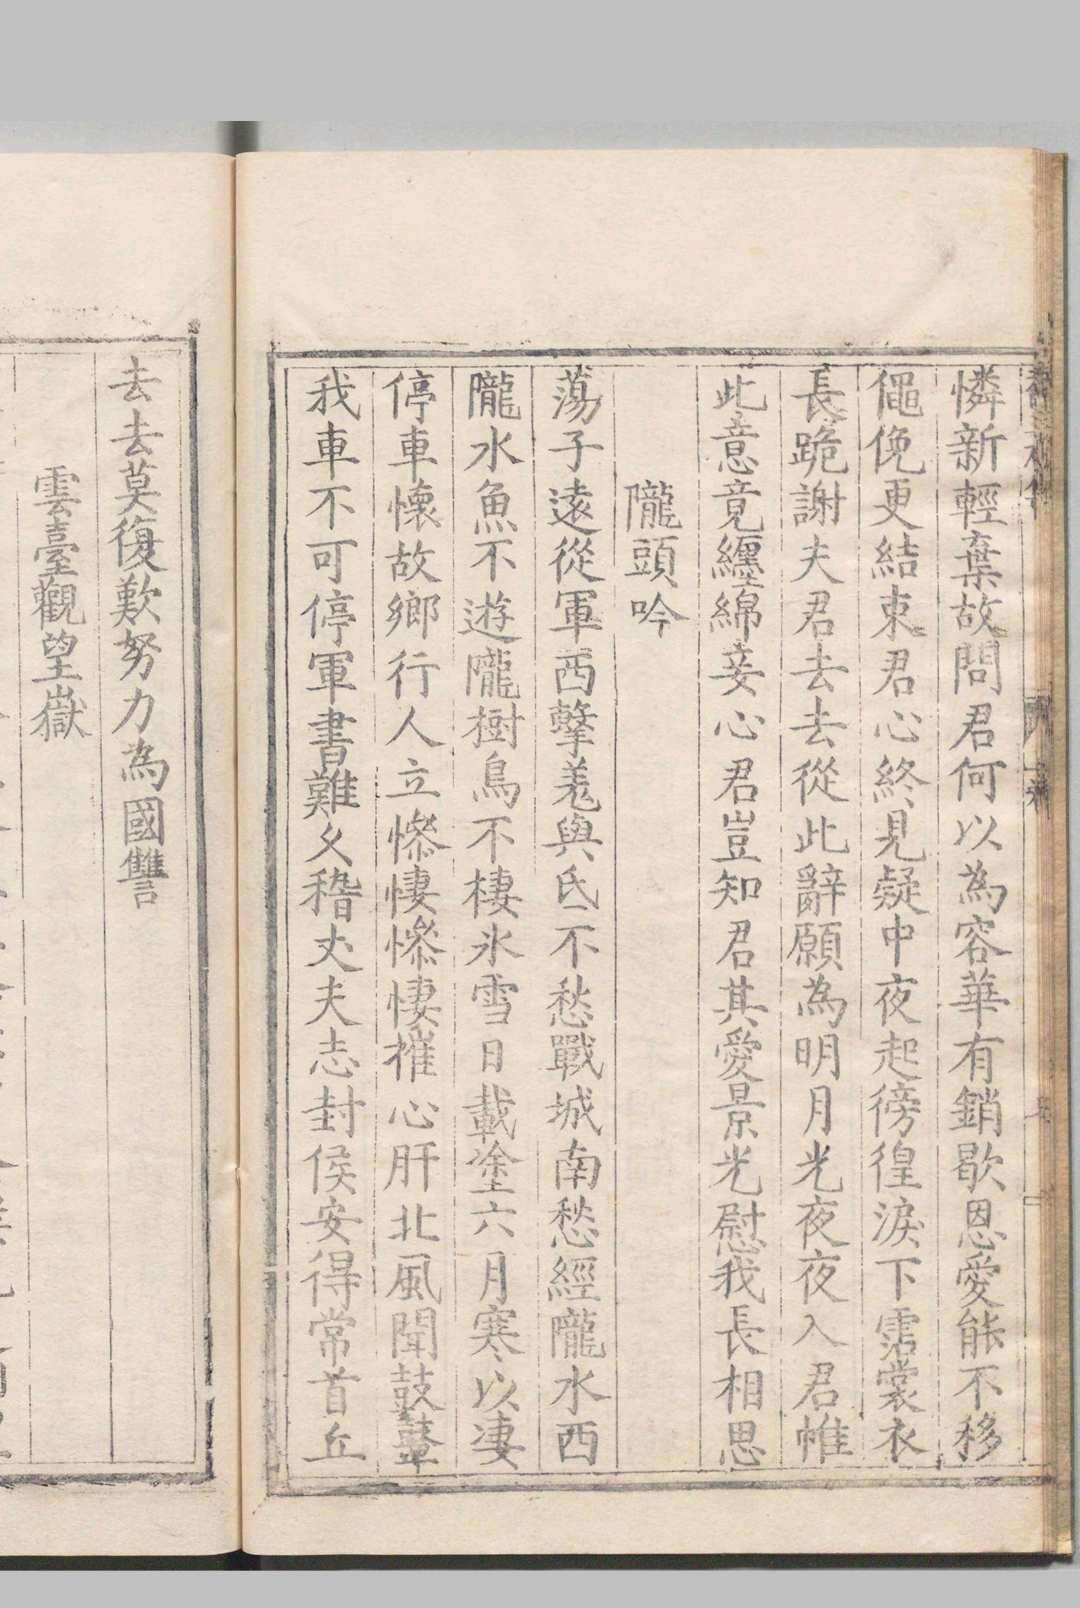 憐新輕棄故問君何以為容華有銷歇恩愛能不移
僶俛更結束君心終見疑中夜起徬徨淚下霑裳衣
長跪謝夫君去去從此辭願為明月光夜夜入君帷
此意竟纏綿妾心君豈知君其愛景光慰我長相思
隴頭吟
蕩子遠從軍西擊羗與氐不愁戰城南愁經隴水西
隴水魚不遊隴樹鳥不棲氷雪日載塗六月寒以凄
停車懷故鄉行人立慘悽慘悽摧心肝北風聞鼓鼙
我車不可停軍書難久稽丈夫志封侯安得常首丘
去去莫復歎努力為國讐
雲臺觀望嶽